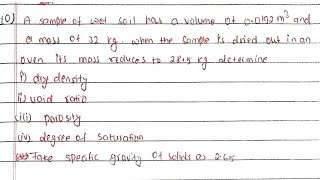 (10) A sample of wet soil has a volume of 0.0192 m³ and
a mass of 32 kg. when the sample is dried out in an
oven its mass reduces to 28.5 kg determine
i) dry density
ii) void ratio
(iii) porosity
(iv) degree of saturation
Take specific gravity of solids as 2.65